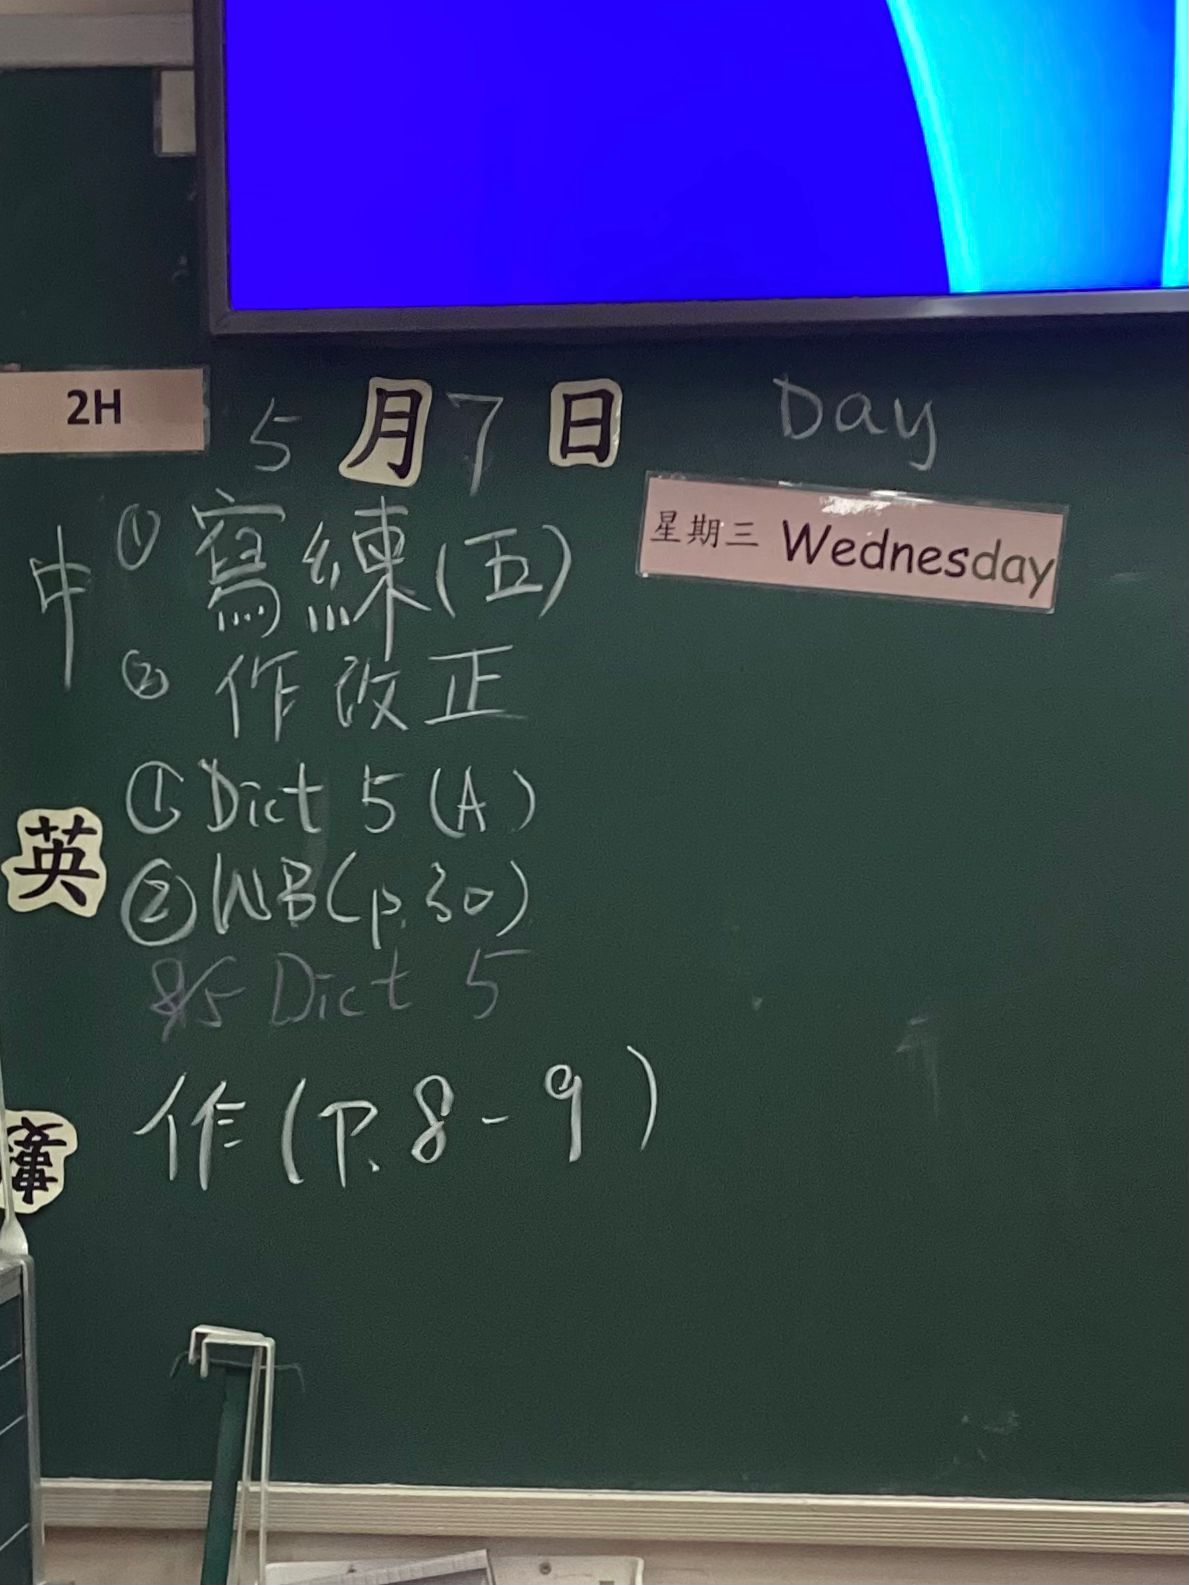 2H
5月7日 Day
星期三 Wednesday
中 ① 寫練(五)
② 作改正
英 ① Dict 5 (A)
② WB(p.30)
8/5 Dict 5
作(P.8-9)